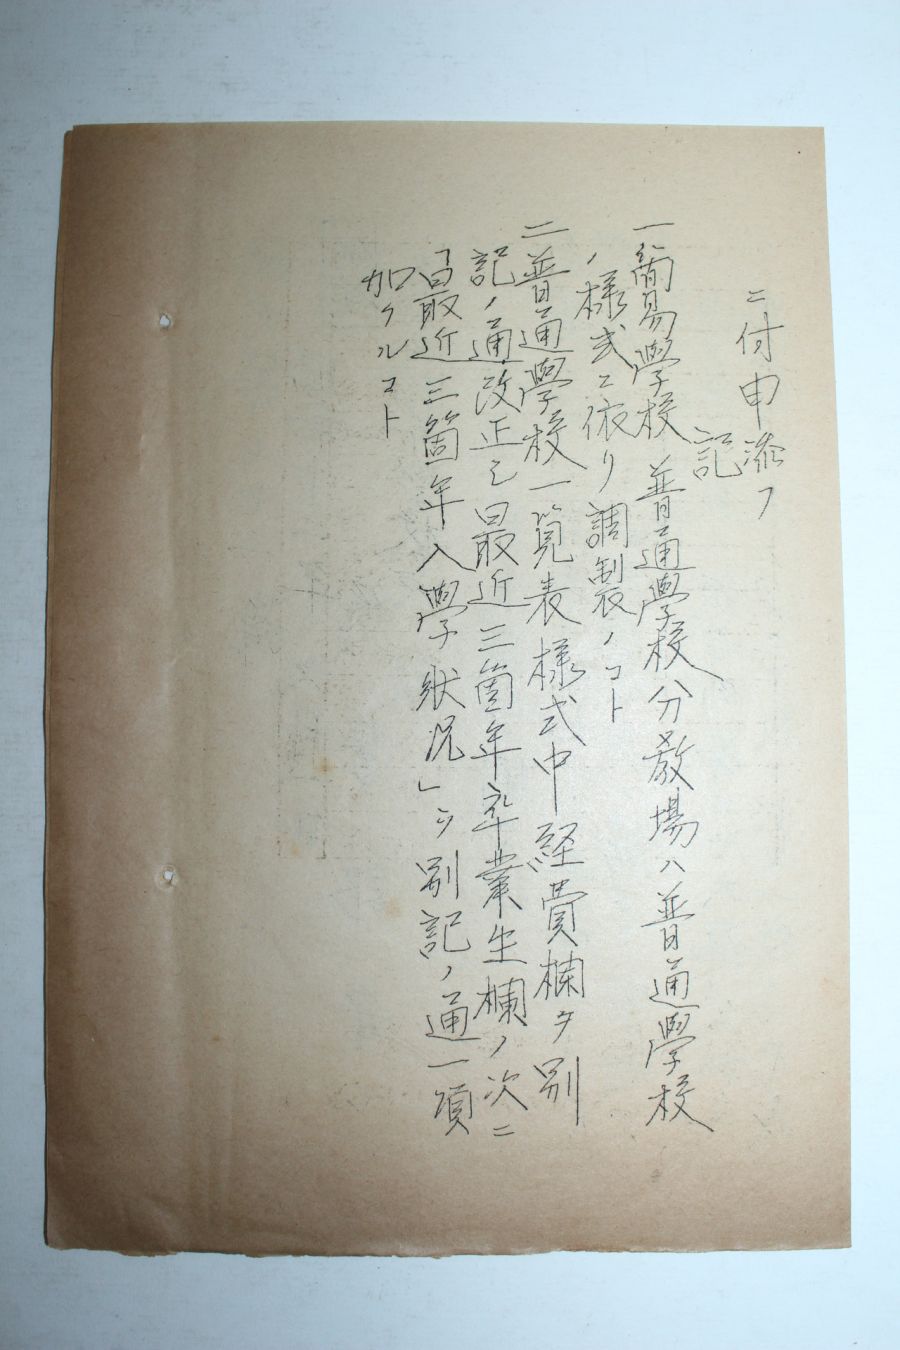 ニ付申添フ
記
一簡易學校、普通學校分教場ハ普通學校
ノ様式ニ依リ調製ノコト
二普通學校一覧表様式中経費欄ヲ別
記ノ通改正シ最近三箇年卒業生欄ノ次ニ
「最近三箇年入學狀況」ヲ別記ノ通一項
加フルコト